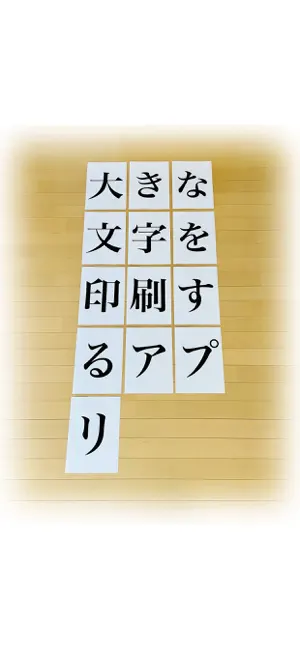 大きな
文字を
印刷す
るアプ
リ